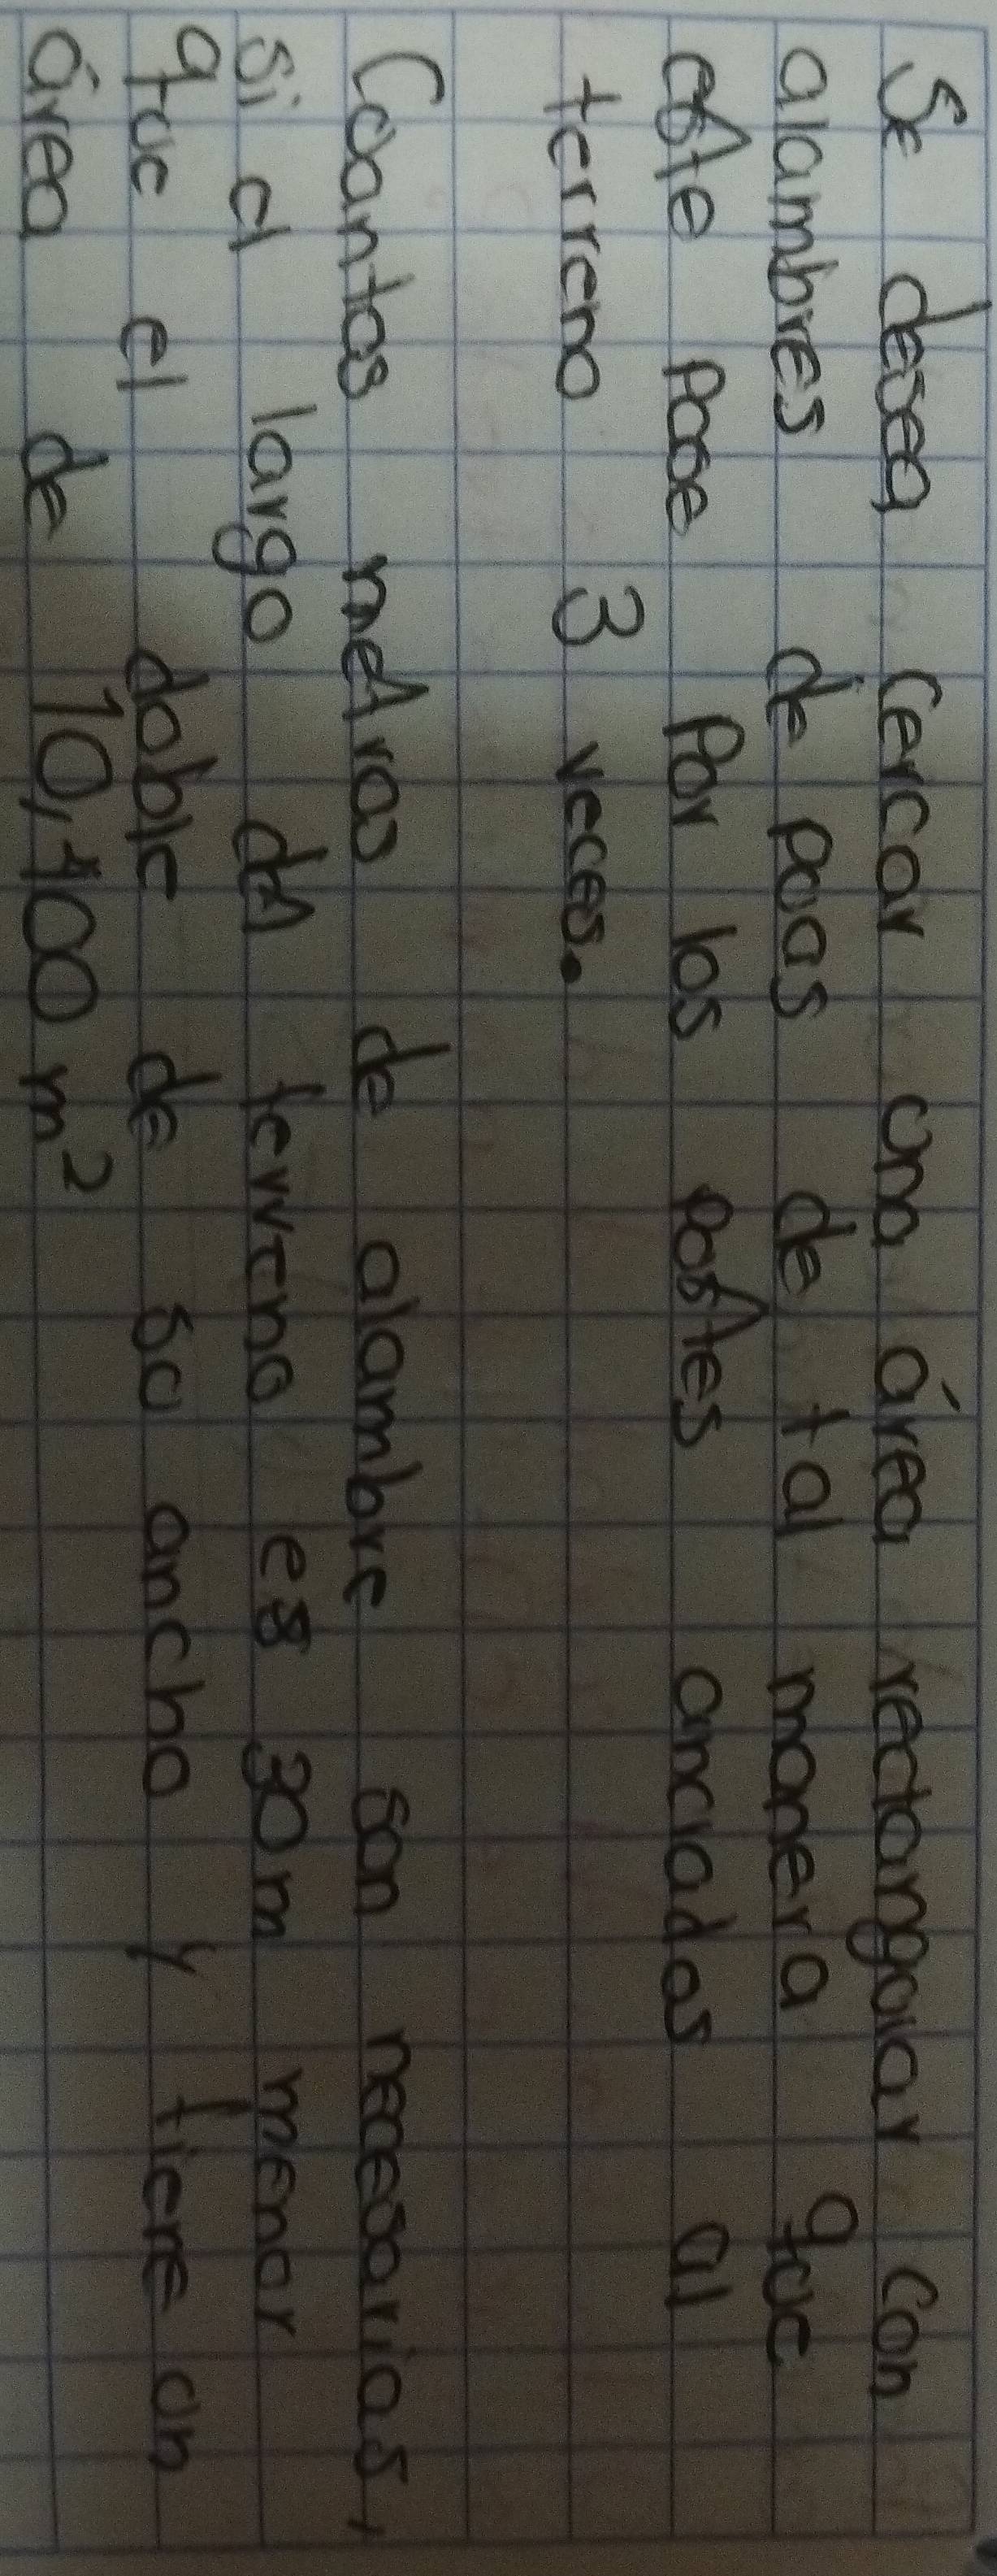 Se desea cercar una área rectangular con
alambres de puas de tal manera que
este pase por los postes anclados al
terreno 3 veces.
Cuantos metros de alambre son necesarios,
si el largo del terreno es 30m menor
que el doble de su ancho y tiene un
área de 10,400 m²